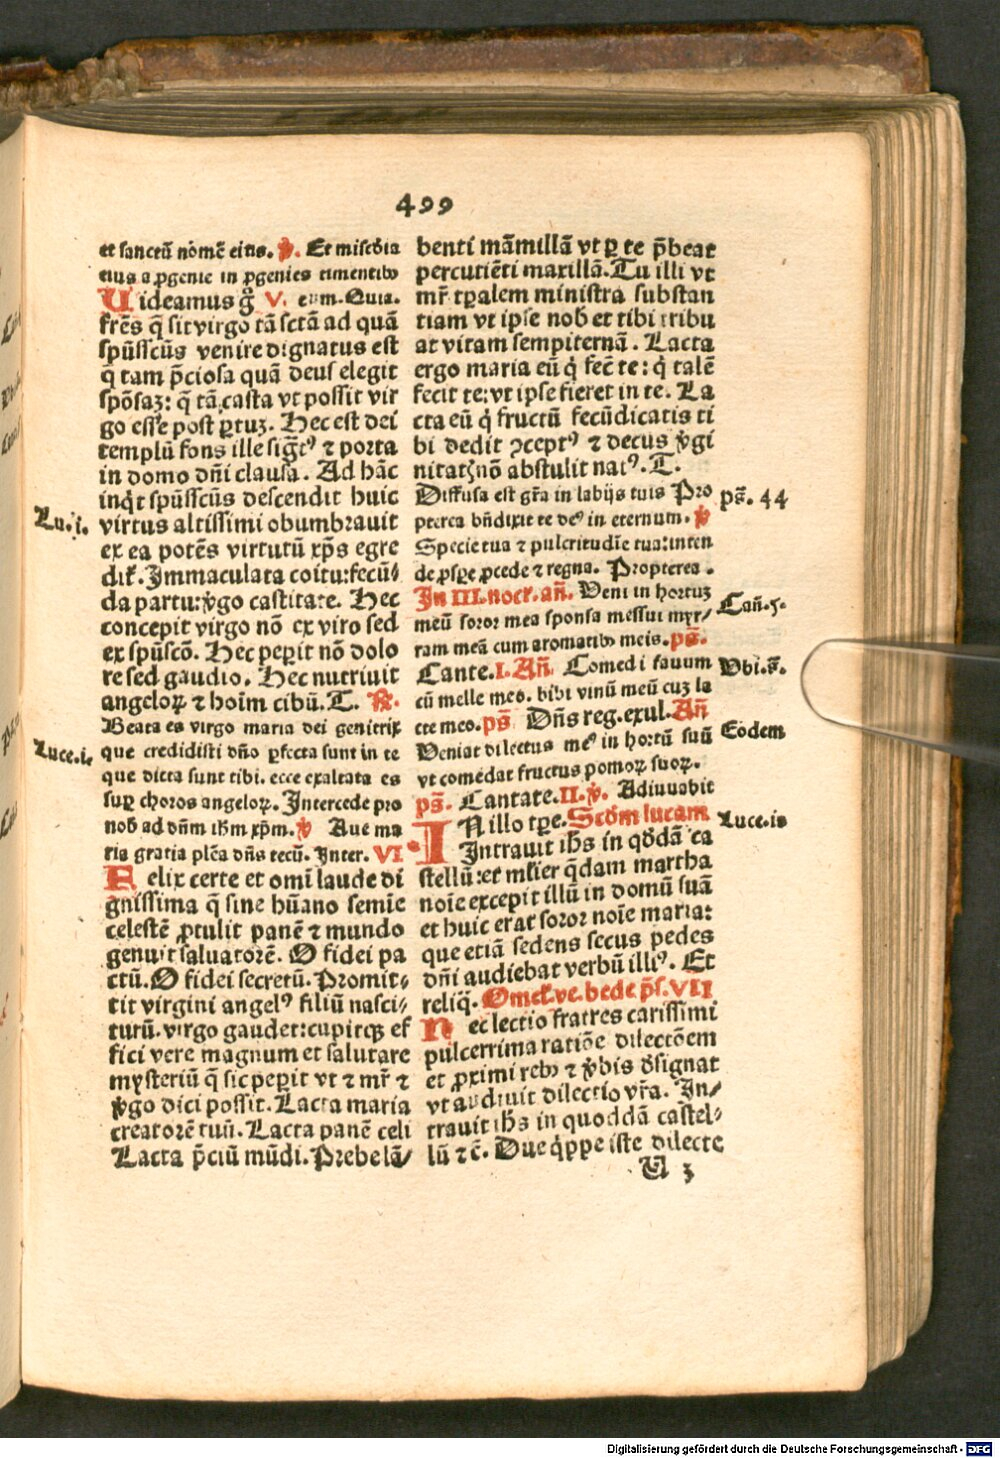 499
et sanctū nomē eius. ℣. Et miscd̄ia
eius a ꝓgenie in ꝓgenies timentibꝫ
Uideamus g̊ V. eum. Quia.
frēs q̄ sit virgo tā sctā ad quā
spūsscūs venire dignatus est
q̄ tam p̄ciosa quā deus elegit
spōsaꝫ: q̄ tā casta vt possit vir
go esse post ꝑtuꝫ. Hec est dei
templū fons ille sig̅t⁹ ⁊ porta
in domo dn̄i clausa. Ad hāc
inq̇t spūsscūs descendit huic
Lu.i.
virtus altissimi obumbrauit
ex ea potēs virtutū xp̄s egre
dit̄. Immaculata coitu: fecū⸗
da partu: v̇go castitate. Hec
concepit virgo nō ex viro sed
ex spūscō. Hec peperit nō dolo
re sed gaudio. Hec nutriuit
angeloꝝ ⁊ hoīm cibū. T. ℟.
Beata es virgo maria dei genitrix
Luce.i.
que credidisti dn̄o ꝑfecta sunt in te
que dicta sunt tibi. ecce exaltata es
suꝑ choros angeloꝝ. Intercede pro
nob̄ ad dn̄m ih̄m xp̄m. ℣ Aue ma
ria gratia plēa dn̄s tecū. Inter. VI
Felix certe et omī laude di
gnissima q̄ sine hūano semīe
celestē ꝓtulit panē ⁊ mundo
genuit saluatorē. O fidei pa
ctū. O fidei secretū. Promit⸗
tit virgini angel⁹ filiū nasci⸗
turū. virgo gaudet: cupitqꝫ ef
fici vere magnum et salutare
mysteriū q̄ sic peꝑit vt ⁊ mr̄ ⁊
v̇go dici possit. Lacta maria
creatorē tuū. Lacta panē celi
Lacta p̄ciū mūdi. Prebe lā⸗
benti māmillā vt ꝓ te p̄beat
percutiēti maxillā. Tu illi vt
mr̄ tꝑalem ministra substan
tiam vt ipse nob̄ et tibi tribu
at vitam sempiternā. Lacta
ergo maria eū q̇ fec̄ te: q̇ talē
fecit te: vt ipse fieret in te. La
cta eū q̇ fructū fecūdicatis ti
bi dedit ꝯcept⁹ ⁊ decus v̇gi
nitatꝭ nō abstulit nat⁹. T.
Diffusa est gr̄a in labijs tuis Pro
ps̄. 44
pterea bn̄dixit te de⁹ in eternum. ℣
Specie tua ⁊ pulcritudīe tua: inten
de ꝓsꝑe ꝓcede ⁊ regna. Propterea.
In III. noct. an̄. Veni in hortuꝫ
Can̄.5.
meū soror mea sponsa messui myr⸗
ram meā cum aromatibꝫ meis. ps̄.
Cante. I. An̄ Comedi fauum
Vbi.s̄.
cū melle meo. bibi vinū meū cuꝫ la
cte meo. ps̄ Dn̄s reg. exul. An̄
Eodem
Veniat dilectus me⁹ in hortū suū
vt comedat fructus pomoꝝ suoꝝ.
ps̄. Cantate. II. ℣. Adiuuabit
IN illo tꝑe. Scd̄m lucam
Luce.io
Intrauit ih̄s in qd̄dā ca
stellū: et ml̄ier q̇dam martha
noīe excepit illū in domū suā
et huic erat soror noīe maria:
que etiā sedens secus pedes
dn̄i audiebat verbū illi⁹. Et
reliq̇. Omel̄. ve. bede p̄s. VII
Nec lectio fratres carissimi
pulcerrima ratiōe dilectōem
et ꝓximi rebꝫ ⁊ v̇bis d̄signat
vt audiuit dilectio vr̄a. In⸗
trauit ih̄s in quoddā castel⸗
lū ⁊c̄. Due q̇ppe iste dilecte
U 3
Digitalisierung gefördert durch die Deutsche Forschungsgemeinschaft - DFG